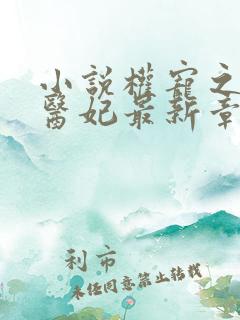 小說權寵之
醫妃最新章
利市
未經同意禁止轉載